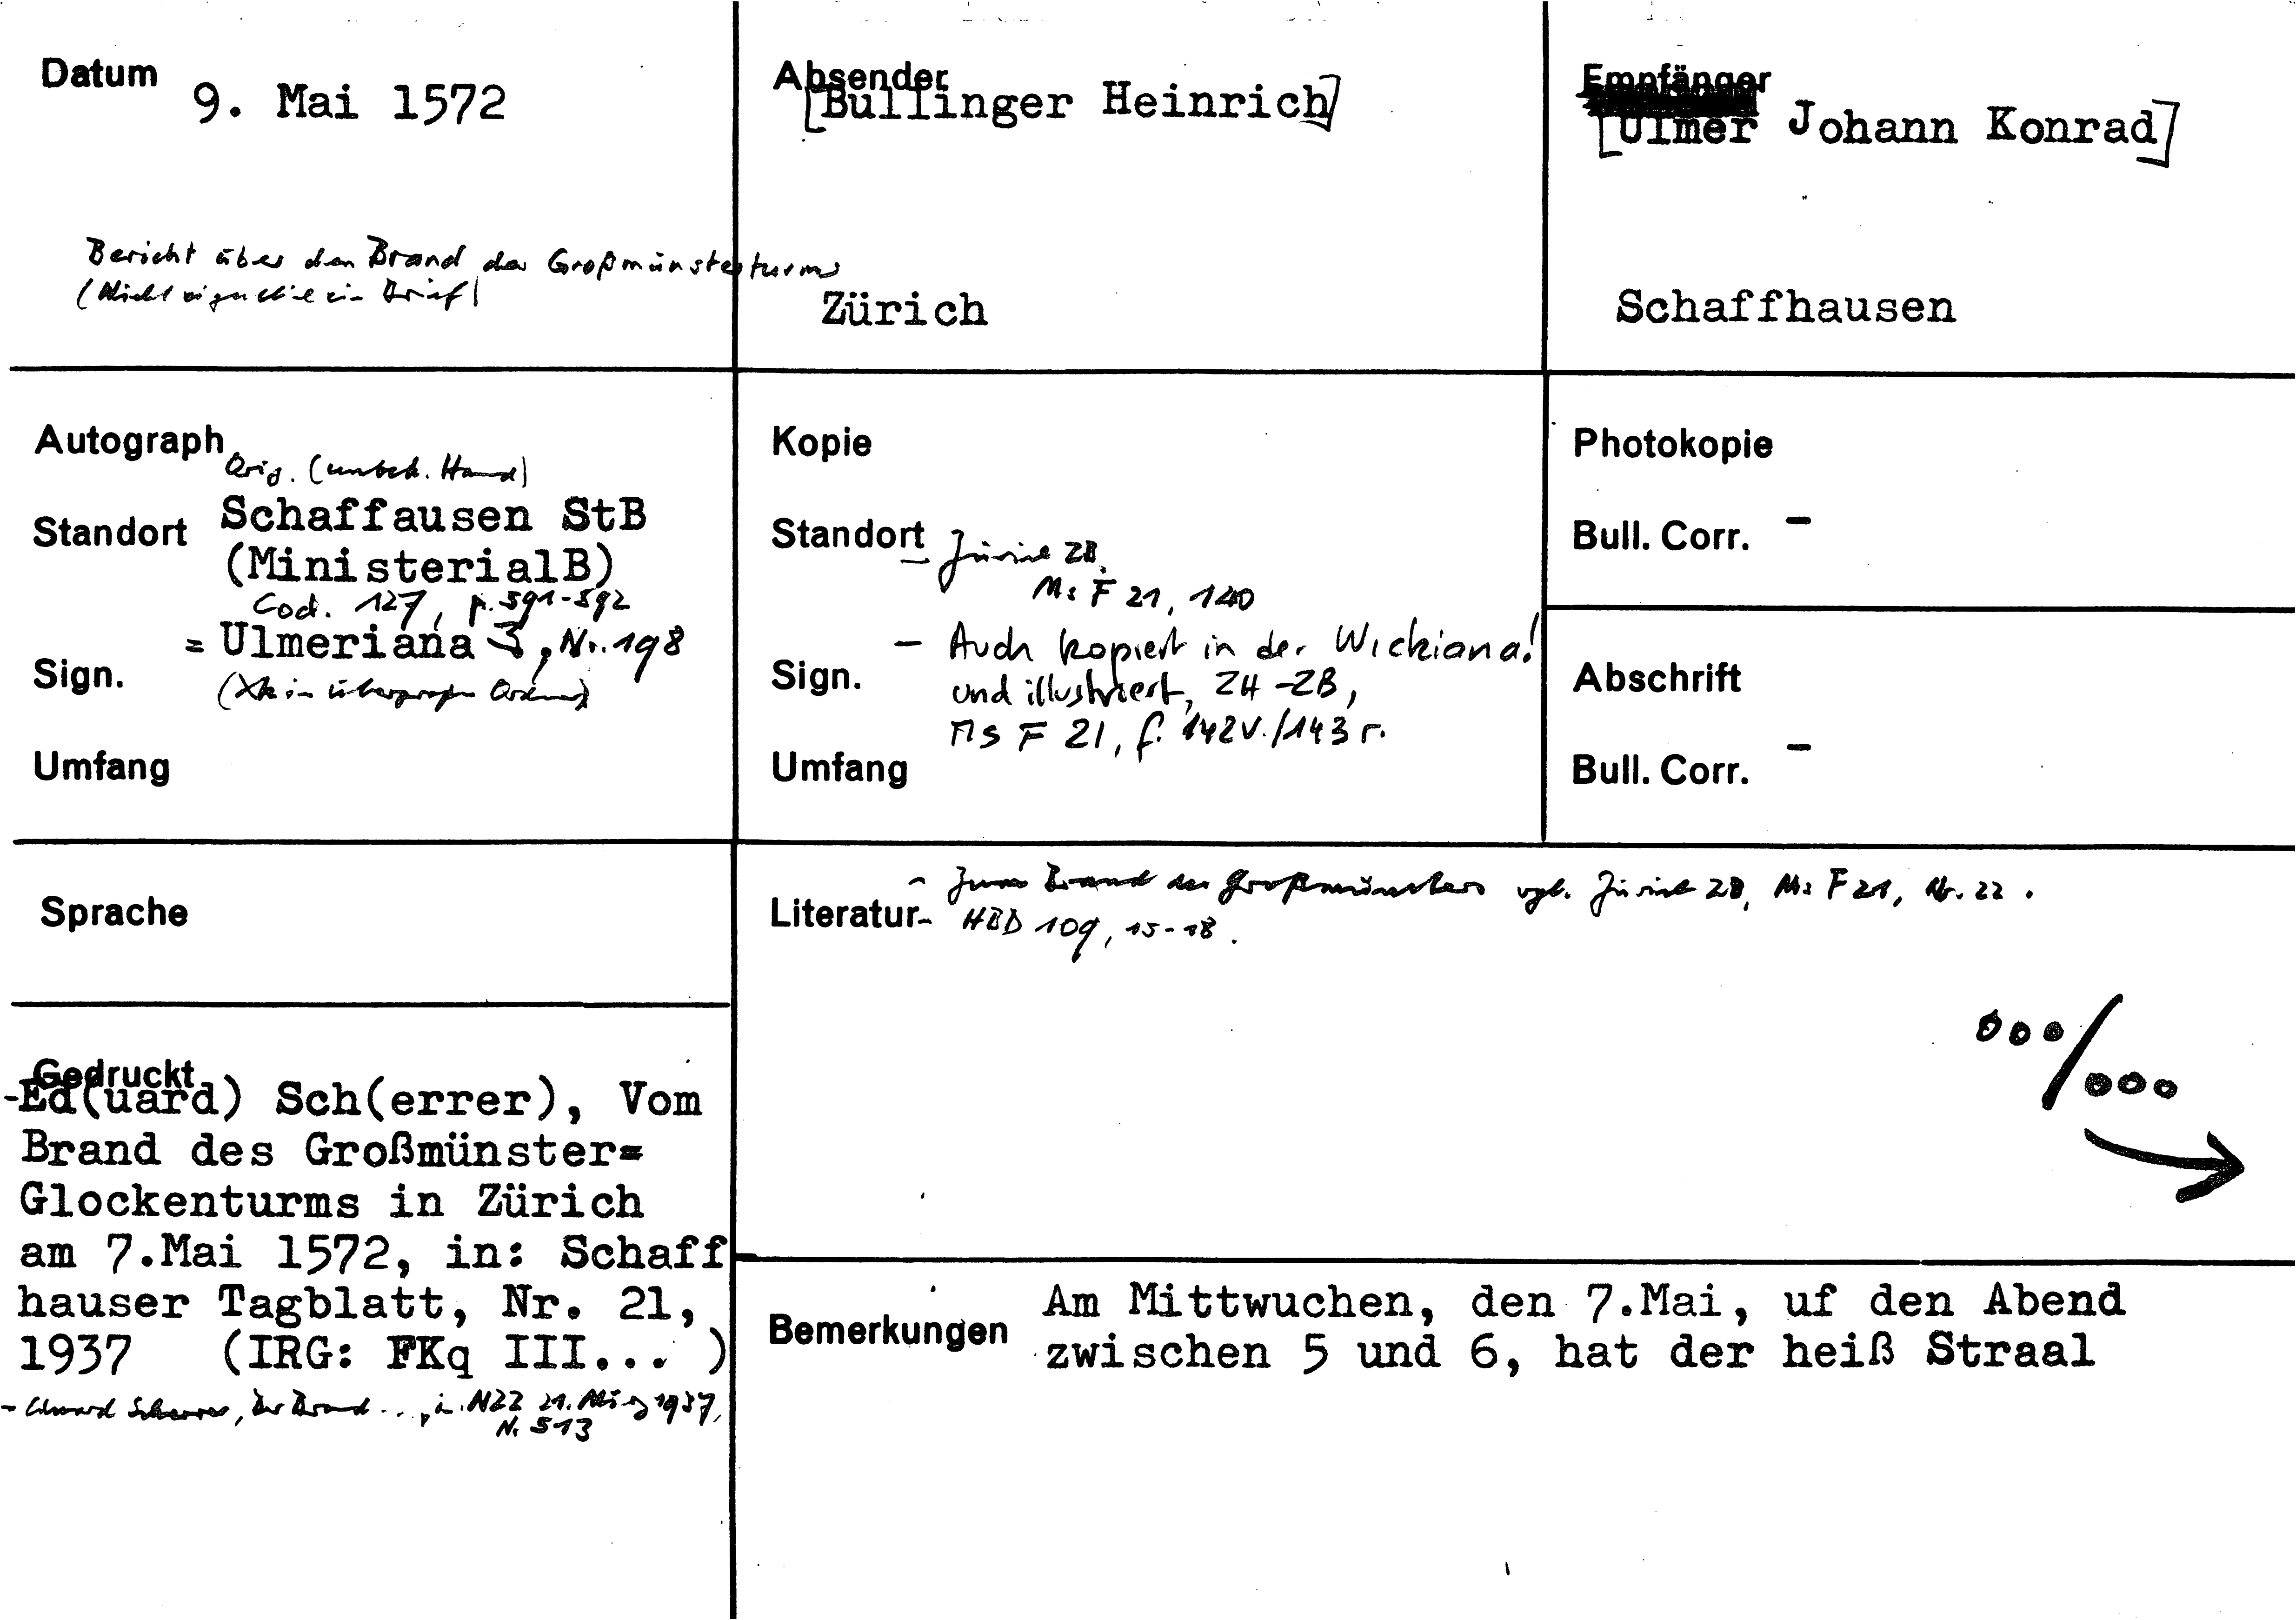 Datum
9. Mai 1572
Bericht über den Brand des Großmünsterturms
(Nicht eigentlich ein Brief)
Absender
[Bullinger Heinrich]
Zürich
Empfänger
[Ulmer Johann Konrad]
Schaffhausen
Autograph
Orig. (unbek. Hand)
Standort Schaffausen StB
(MinisterialB)
Cod. 127, p. 591-592
= Ulmeriana 3, Nr. 198
Sign.
Umfang
Kopie
Standort
- Zürich ZB,
Ms F 21, 140
- Auch kopiert in der Wickiana!
Sign.
und illustriert, ZH-ZB,
Ms F 21, f. 142v./143r.
Umfang
Photokopie
Bull. Corr. -
Abschrift
Bull. Corr. -
Sprache
Literatur
- Zum Brand des Großmünsters vgl. Zürich ZB, Ms F 21, Nr. 22.
- HBD 109, 15-18.
.../...
Gedruckt
-Ed(uard) Sch(errer), Vom
Brand des Großmünster=
Glockenturms in Zürich
am 7.Mai 1572, in: Schaff
hauser Tagblatt, Nr. 21,
1937 (IRG: FKq III... )
- Eduard Scherrer, Der Brand..., in: NZZ 21. März 1937,
Nr 513
Bemerkungen
Am Mittwuchen, den 7.Mai, uf den Abend
zwischen 5 und 6, hat der heiß Straal